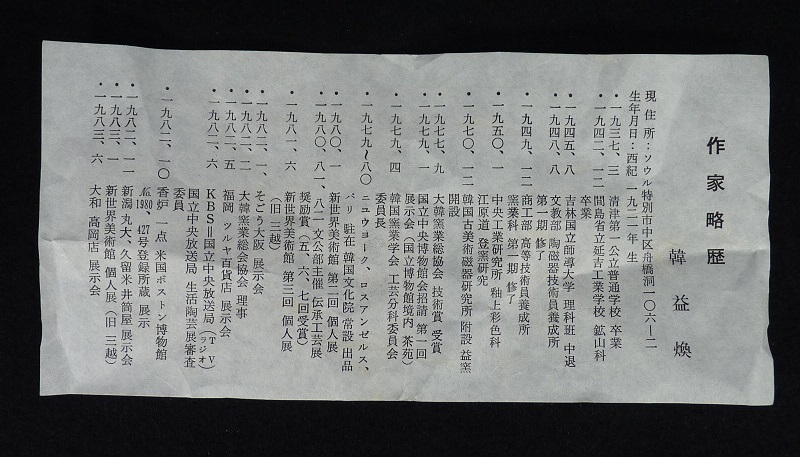 作家略歴
韓益煥
現住所：ソウル特別市中区舟橋洞一〇六ー二
生年月日：西紀 一九二一年 生
・一九三七、三 清津第一公立普通学校 卒業
・一九四二、一二 間島省立延吉工業学校 鉱山科
卒業
・一九四五、八 吉林国立師導大学 理科班 中退
・一九四八、八 文教部 陶磁器技術員養成所
第一期 修了
・一九四九、一二 商工部 高等技術員養成所
窯業科 第一期 修了
・一九五〇、一 中央工業研究所 釉上彩色科
江原道 登窯研究
・一九七〇、一二 韓国古美術磁器研究所 附設 益窯
開設
・一九七七、九 大韓窯業総協会 技術賞 受賞
・一九七九、一 国立中央博物館会招請 第一回
展示会（国立博物館境内 茶苑）
・一九七九、四 韓国窯業学会 工芸分科委員会
委員長
・一九七九〜八〇 ニュウヨーク、ロスアンゼルス、
パリ 駐在 韓国文化院 常設 出品
・一九八〇、一 新世界美術館 第二回 個人展
・一九八〇、八一、八二 文公部主催 伝承工芸展
奨励賞（五、六、七回受賞）
・一九八一、六 新世界美術館 第三回 個人展
（旧 三越）
・一九八二、一、 そごう大阪 展示会
・一九八二、二 大韓窯業総会協会 理事
・一九八二、五 福岡 ツルヤ百貨店 展示会
・一九八二、六 KBS＝国立中央放送局（TVラジオ）
国立中央放送局 生活陶芸展審査
委員
・一九八二、一〇 香炉 一点 米国ボストン博物館
№1980、427号登録所蔵 展示
・一九八二、一一 新潟丸大、久留米井筒屋 展示会
・一九八三、一 新世界美術館 個人展（旧 三越）
・一九八三、六 大和 高岡店 展示会